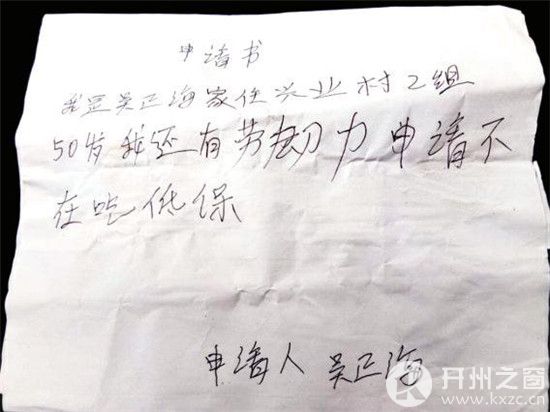 申请书
我是吴正海家住兴业村2组
50岁我还有劳动力申请不
在吃低保
申请人 吴正海
开州之窗
www.kxzc.cn